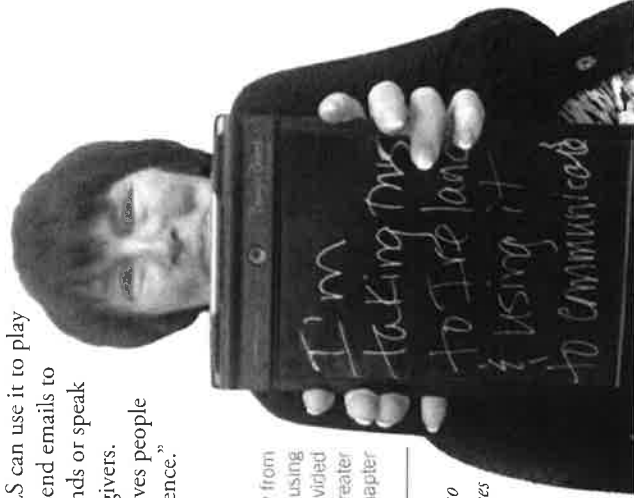 S can use it to play
end emails to
nds or speak
givers.
ves people
ence.”
from
using
vided
reater
apter
I'm
taking this
to Ireland
& using it
to communicate